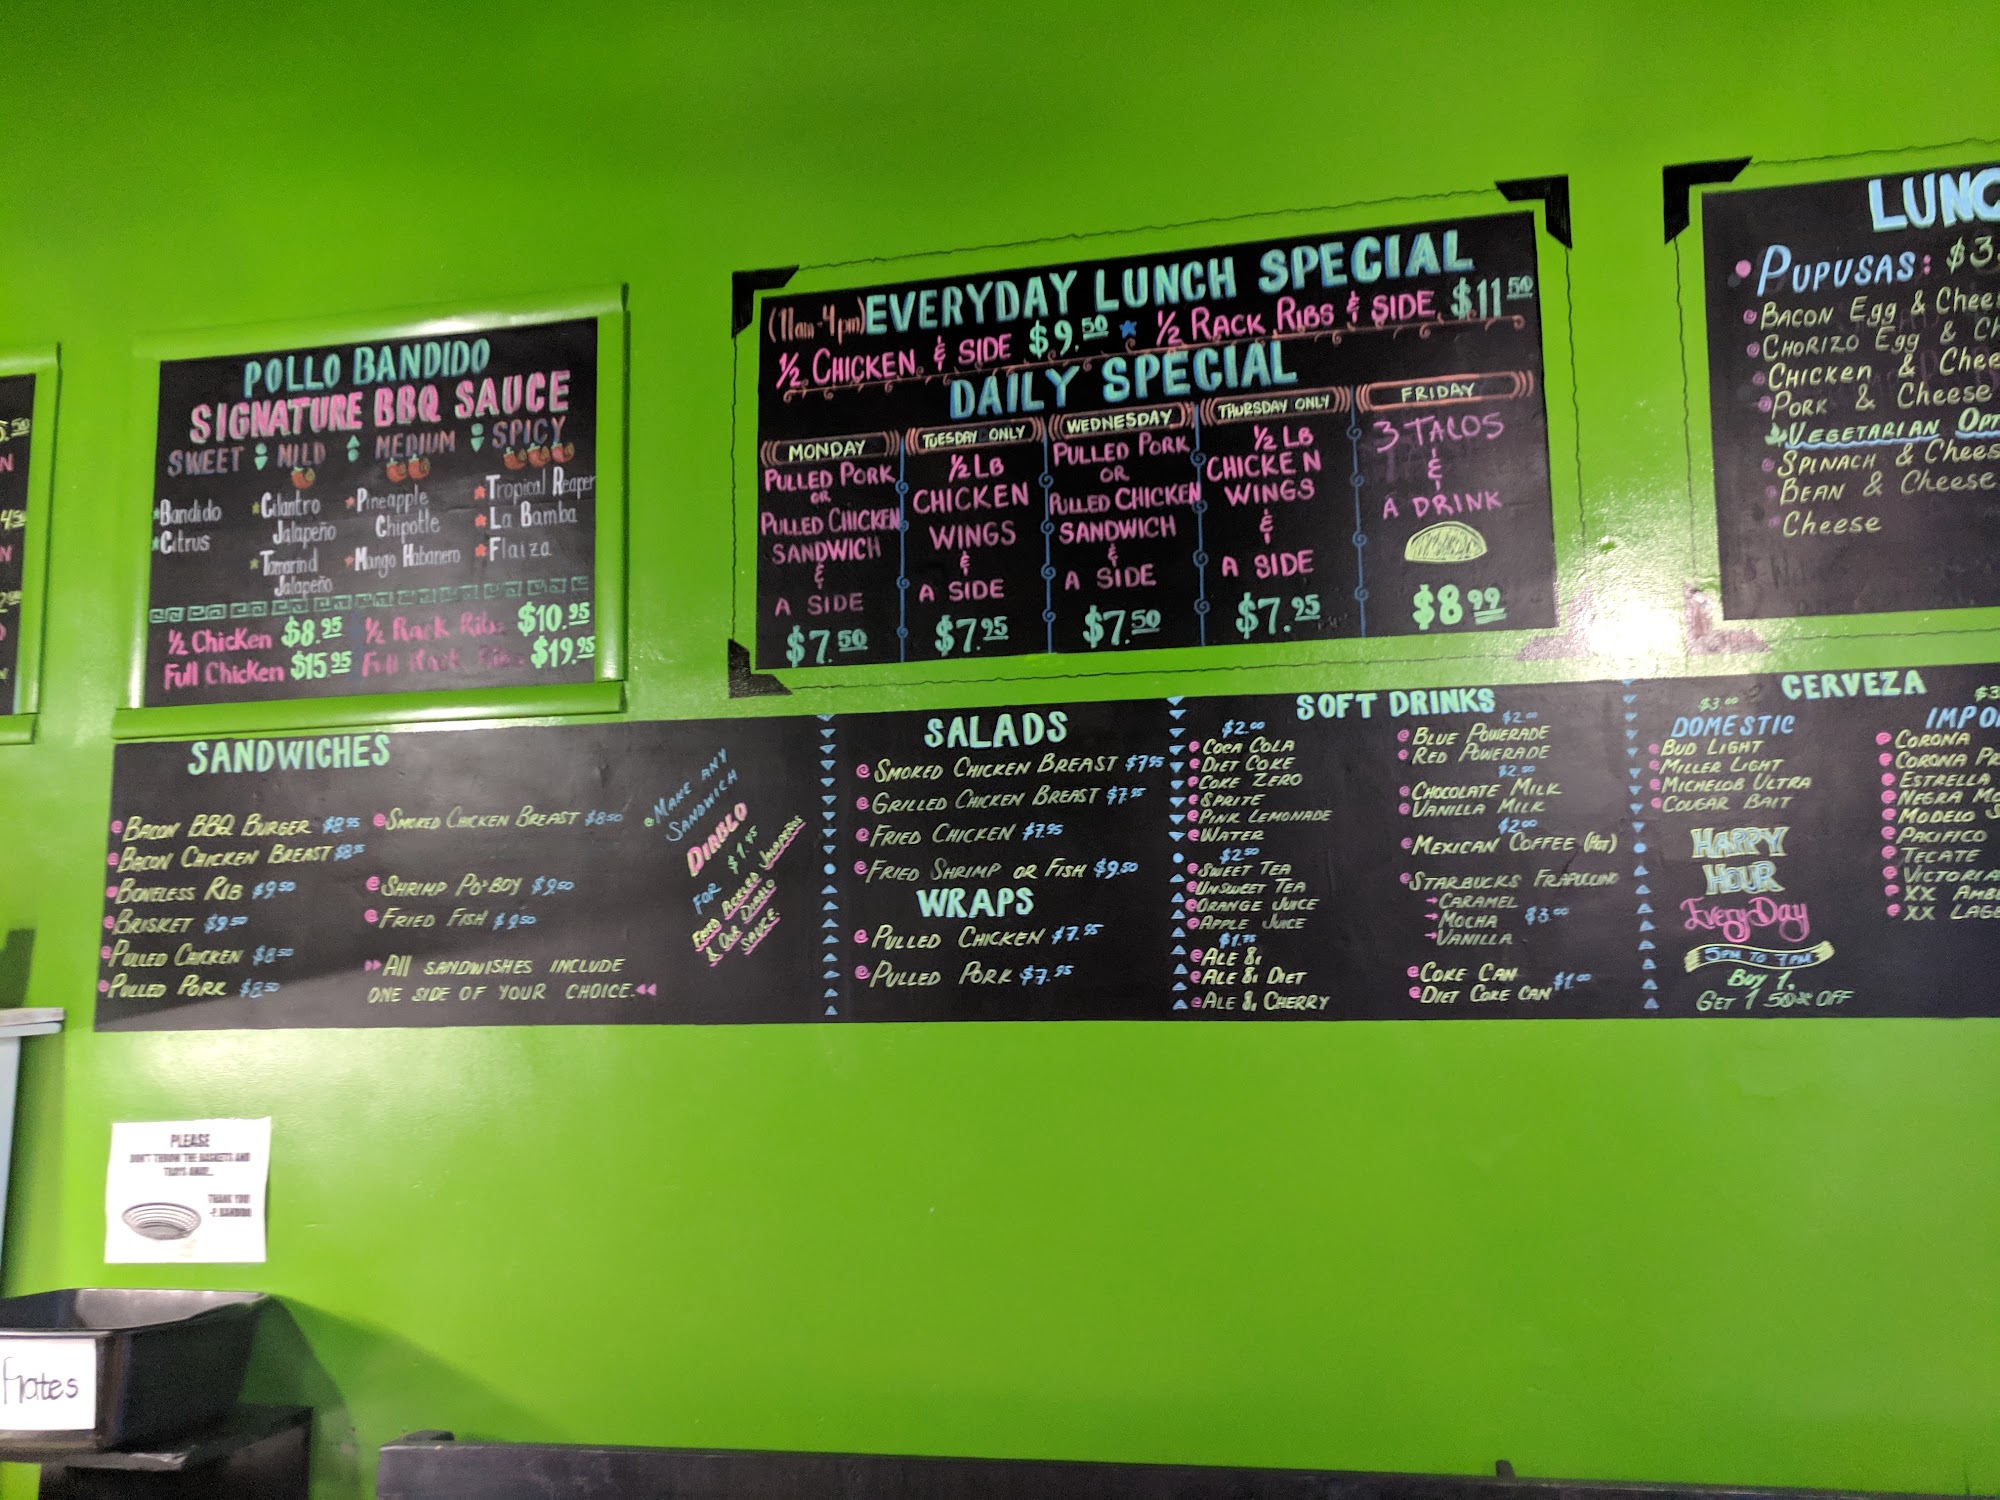 POLLO BANDIDO
SIGNATURE BBQ SAUCE
SWEET MILD MEDIUM SPICY
Bandido
Citrus
Cilantro
Jalapeño
Tamarind
Jalapeño
Pineapple
Chipotle
Mango Habanero
Tropical Reaper
La Bamba
Flaiza
1/2 Chicken $8.95 1/2 Rack Ribs $10.95
Full Chicken $15.95 Full Rack Ribs $19.95
(11am-4pm) EVERYDAY LUNCH SPECIAL
1/2 CHICKEN & SIDE $9.50 ★ 1/2 RACK RIBS & SIDE $11.50
DAILY SPECIAL
MONDAY
PULLED PORK
OR
PULLED CHICKEN
SANDWICH
&
A SIDE
$7.50
TUESDAY ONLY
1/2 LB
CHICKEN
WINGS
&
A SIDE
$7.95
WEDNESDAY
PULLED PORK
OR
PULLED CHICKEN
SANDWICH
&
A SIDE
$7.50
THURSDAY ONLY
1/2 LB
CHICKEN
WINGS
&
A SIDE
$7.95
FRIDAY
3 TACOS
&
A DRINK
$8.99
PUPUSAS: $3.
BACON EGG &
CHORIZO EGG &
CHICKEN &
PORK & CHEESE
VEGETARIAN
SPINACH &
BEAN & CHEESE
CHEESE
SANDWICHES
BACON BBQ BURGER $8.95
BACON CHICKEN BREAST $8.95
BONELESS RIB $9.50
BRISKET $9.50
PULLED CHICKEN $8.50
PULLED PORK $8.50
SMOKED CHICKEN BREAST $8.50
SHRIMP PO'BOY $9.50
FRIED FISH $9.50
ALL SANDWISHES INCLUDE
ONE SIDE OF YOUR CHOICE.
MAKE ANY
SANDWICH
DIABLO
FOR $1.45
FRIED PICKLED JALAPEÑOS
& OUR DIABLO
SAUCE.
SALADS
SMOKED CHICKEN BREAST $7.95
GRILLED CHICKEN BREAST $7.95
FRIED CHICKEN $7.95
FRIED SHRIMP OR FISH $9.50
WRAPS
PULLED CHICKEN $7.95
PULLED PORK $7.95
SOFT DRINKS
$2.00
COCA COLA
DIET COKE
COKE ZERO
SPRITE
PINK LEMONADE
WATER
$2.50
SWEET TEA
UNSWEET TEA
ORANGE JUICE
APPLE JUICE
$1.75
ALE 8,
ALE 8, DIET
ALE 8, CHERRY
$2.00
BLUE POWERADE
RED POWERADE
$2.50
CHOCOLATE MILK
VANILLA MILK
$2.00
MEXICAN COFFEE (HOT)
STARBUCKS FRAPULLINO
CARAMEL
MOCHA $3.00
VANILLA
COKE CAN
DIET COKE CAN $1.00
CERVEZA
$3.00
DOMESTIC
BUD LIGHT
MILLER LIGHT
MICHELOB ULTRA
COUGAR BAIT
HAPPY
HOUR
EVERYDAY
5PM TO 7PM
BUY 1,
GET 1 50% OFF
CORONA
CORONA
ESTRELLA
NEGRA
MODELO
PACIFICO
TECATE
VICTORIA
XX
XX
PLEASE
DON'T THROW THE BASKETS AND
TRAYS AWAY...
THANK YOU